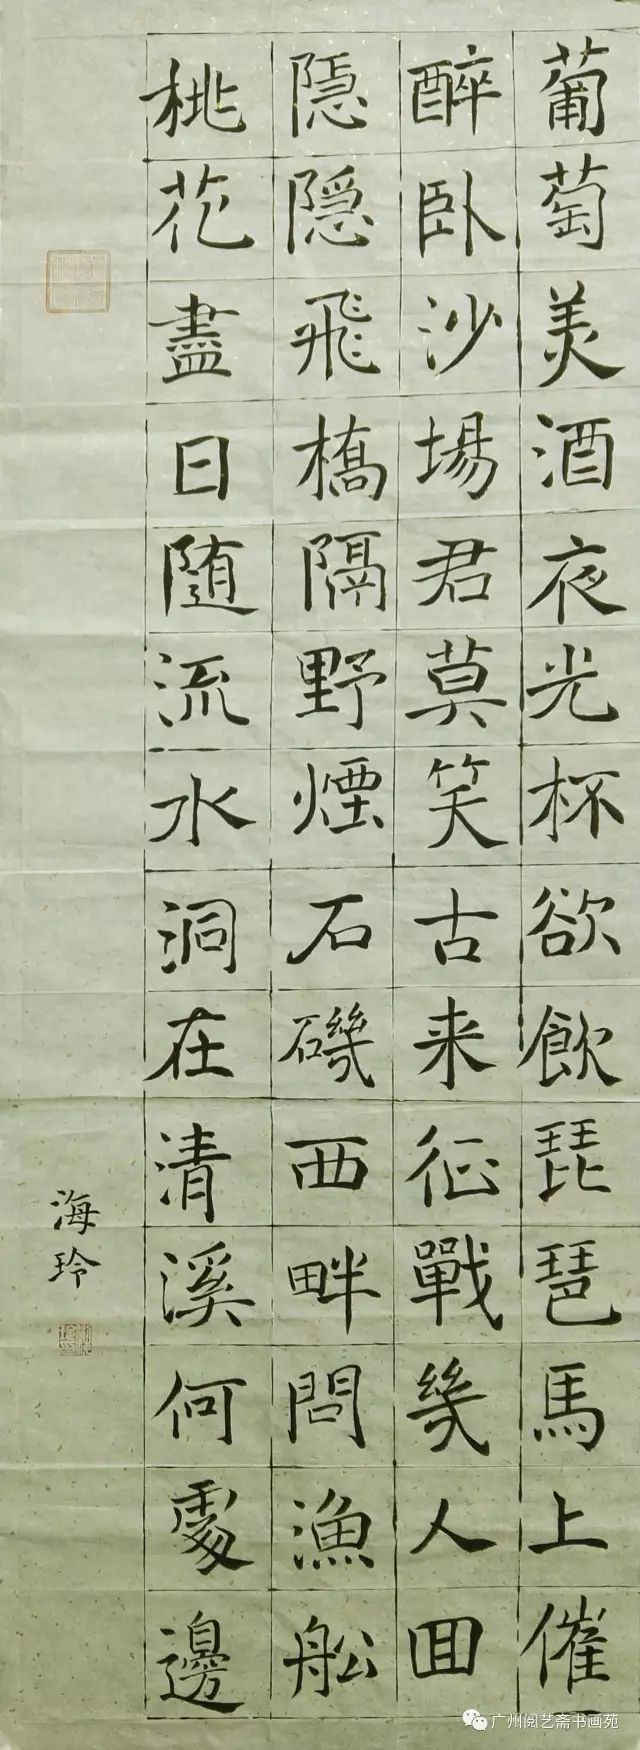 葡萄美酒夜光杯欲飲琵琶馬上催
醉卧沙場君莫笑古来征戰幾人回
隱隱飛橋隔野煙石磯西畔問漁船
桃花盡日随流水洞在清溪何處邊
海玲
广州阅艺斋书画苑